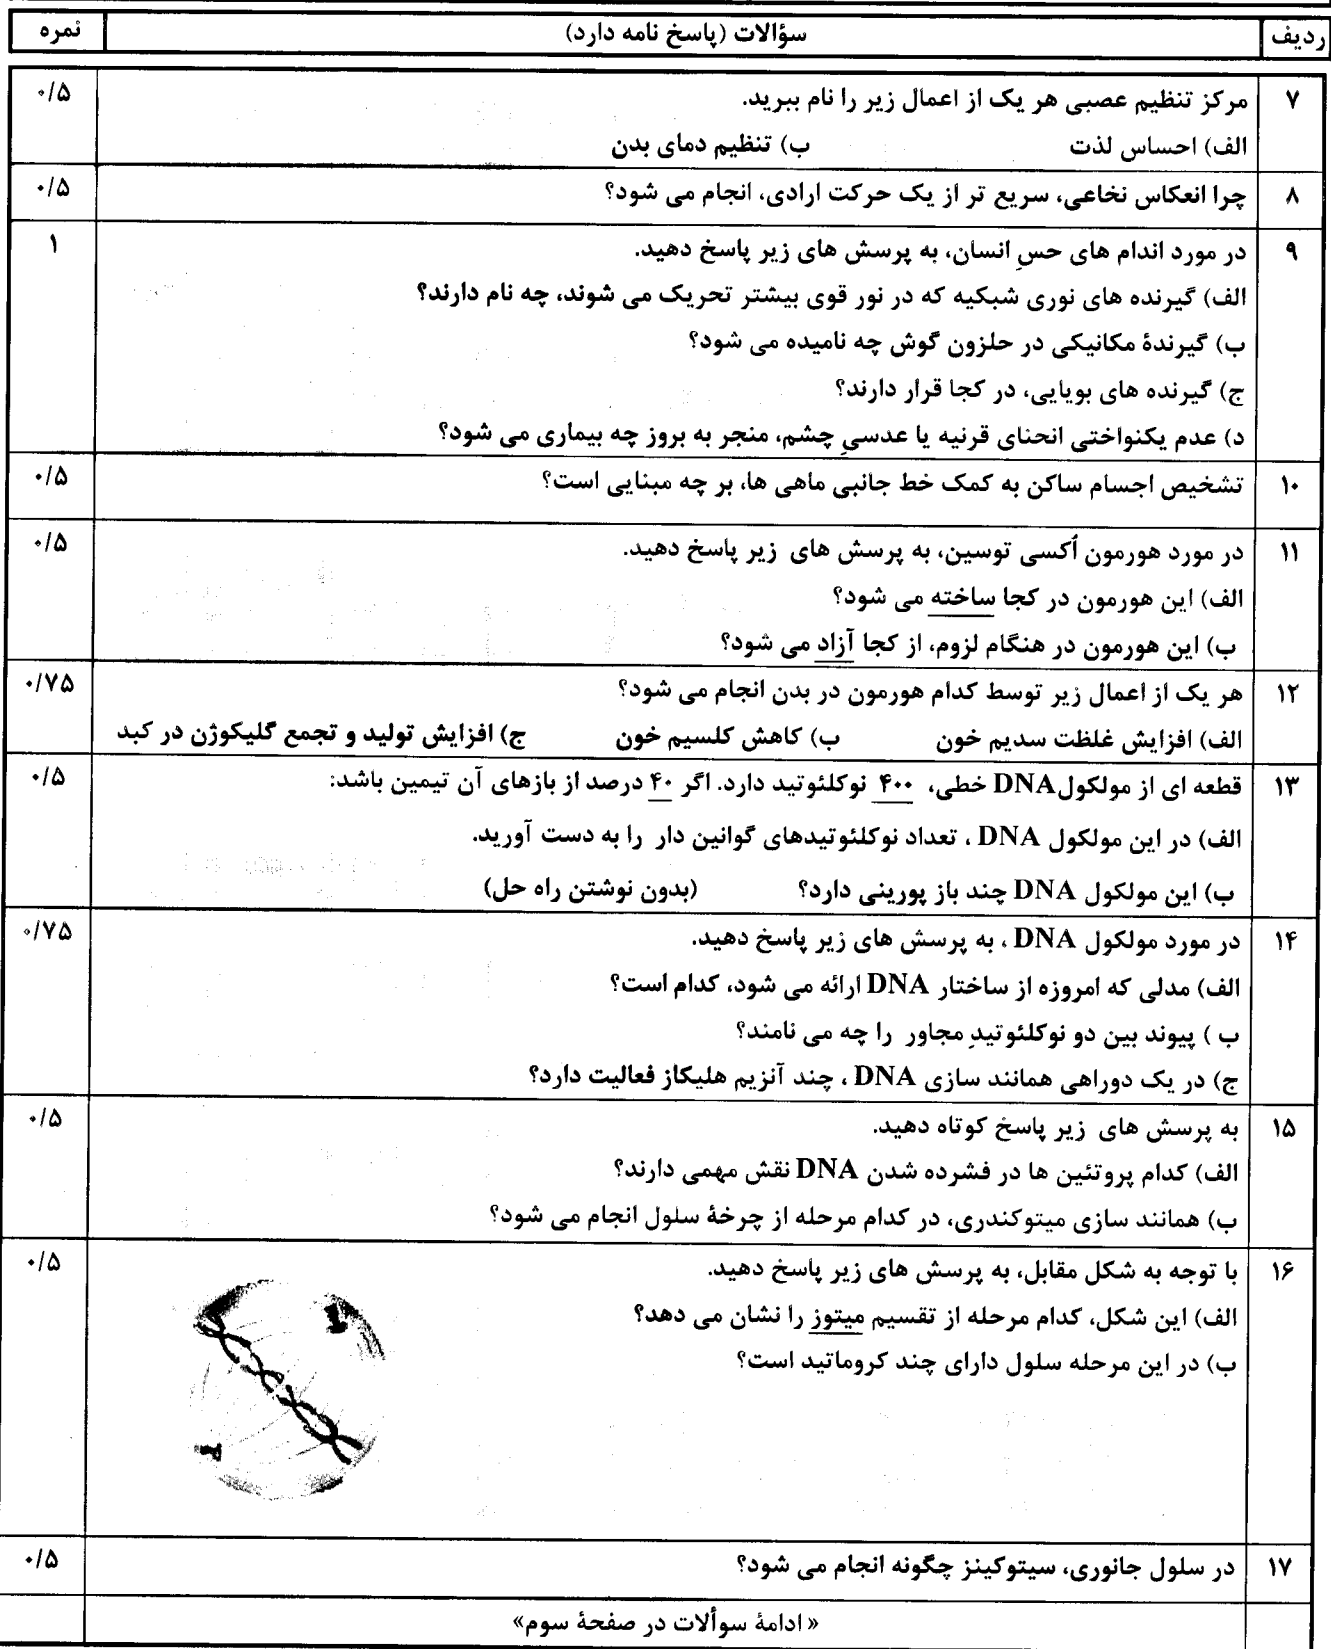 ردیف سؤالات (پاسخ نامه دارد) نمره
۷ مرکز تنظیم عصبی هر یک از اعمال زیر را نام ببرید. ۰/۵
الف) احساس لذت ب) تنظیم دمای بدن
۸ چرا انعکاس نخاعی، سریع تر از یک حرکت ارادی، انجام می شود؟ ۰/۵
۹ در مورد اندام های حسِ انسان، به پرسش های زیر پاسخ دهید. ۱
الف) گیرنده های نوری شبکیه که در نور قوی بیشتر تحریک می شوند، چه نام دارند؟
ب) گیرندهٔ مکانیکی در حلزون گوش چه نامیده می شود؟
ج) گیرنده های بویایی، در کجا قرار دارند؟
د) عدم یکنواختی انحنای قرنیه یا عدسیِ چشم، منجر به بروز چه بیماری می شود؟
۱۰ تشخیص اجسام ساکن به کمک خط جانبی ماهی ها، بر چه مبنایی است؟ ۰/۵
۱۱ در مورد هورمون اُکسی توسین، به پرسش های زیر پاسخ دهید. ۰/۵
الف) این هورمون در کجا ساخته می شود؟
ب) این هورمون در هنگام لزوم، از کجا آزاد می شود؟
۱۲ هر یک از اعمال زیر توسط کدام هورمون در بدن انجام می شود؟ ۰/۷۵
الف) افزایش غلظت سدیم خون ب) کاهش کلسیم خون ج) افزایش تولید و تجمع گلیکوژن در کبد
۱۳ قطعه ای از مولکول DNA خطی، ۴۰۰ نوکلئوتید دارد. اگر ۴۰ درصد از بازهای آن تیمین باشد: ۰/۵
الف) در این مولکول DNA ، تعداد نوکلئوتیدهای گوانین دار را به دست آورید.
ب) این مولکول DNA چند باز پورینی دارد؟ (بدون نوشتن راه حل)
۱۴ در مورد مولکول DNA ، به پرسش های زیر پاسخ دهید. ۰/۷۵
الف) مدلی که امروزه از ساختار DNA ارائه می شود، کدام است؟
ب ) پیوند بین دو نوکلئوتیدِ مجاور را چه می نامند؟
ج) در یک دوراهی همانند سازی DNA ، چند آنزیم هلیکاز فعالیت دارد؟
۱۵ به پرسش های زیر پاسخ کوتاه دهید. ۰/۵
الف) کدام پروتئین ها در فشرده شدن DNA نقش مهمی دارند؟
ب) همانند سازی میتوکندری، در کدام مرحله از چرخهٔ سلول انجام می شود؟
۱۶ با توجه به شکل مقابل، به پرسش های زیر پاسخ دهید. ۰/۵
الف) این شکل، کدام مرحله از تقسیم میتوز را نشان می دهد؟
ب) در این مرحله سلول دارای چند کروماتید است؟
۱۷ در سلول جانوری، سیتوکینز چگونه انجام می شود؟ ۰/۵
« ادامهٔ سوألات در صفحهٔ سوم»